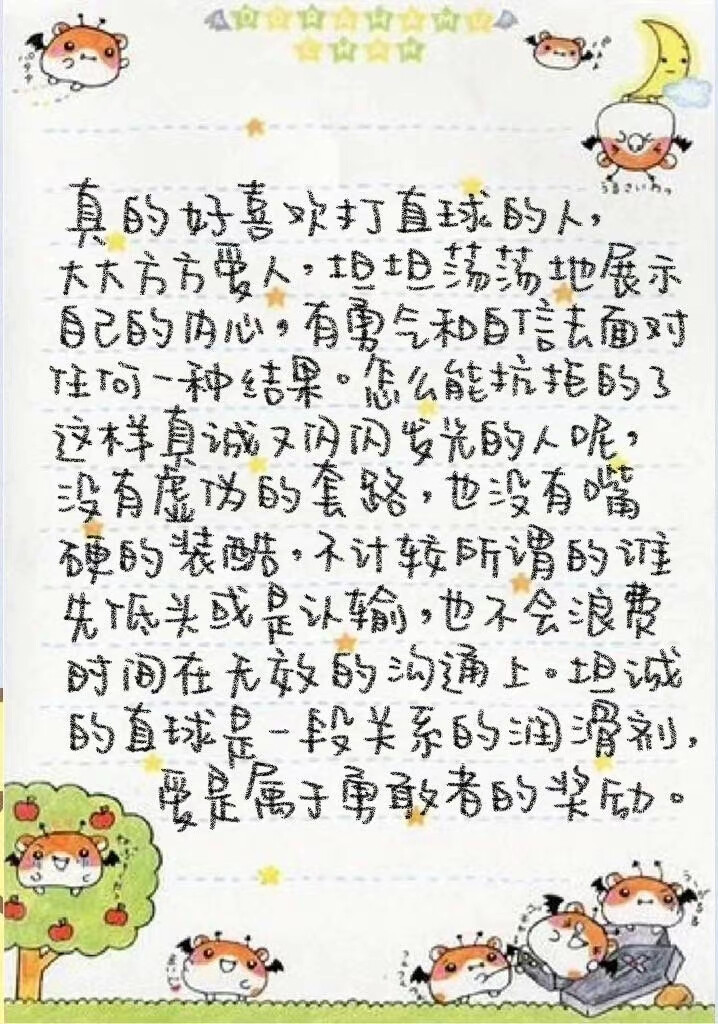 真的好喜欢打直球的人,
大大方方爱人,坦坦荡荡地展示
自己的内心,有勇气和自信去面对
任何一种结果。怎么能抗拒的了
这样真诚又闪闪发光的人呢,
没有虚伪的套路,也没有嘴
硬的装酷,不计较所谓的谁
先低头或是认输,也不会浪费
时间在无效的沟通上。坦诚
的直球是一段关系的润滑剂,
爱是属于勇敢者的奖励。
うるさいわっ